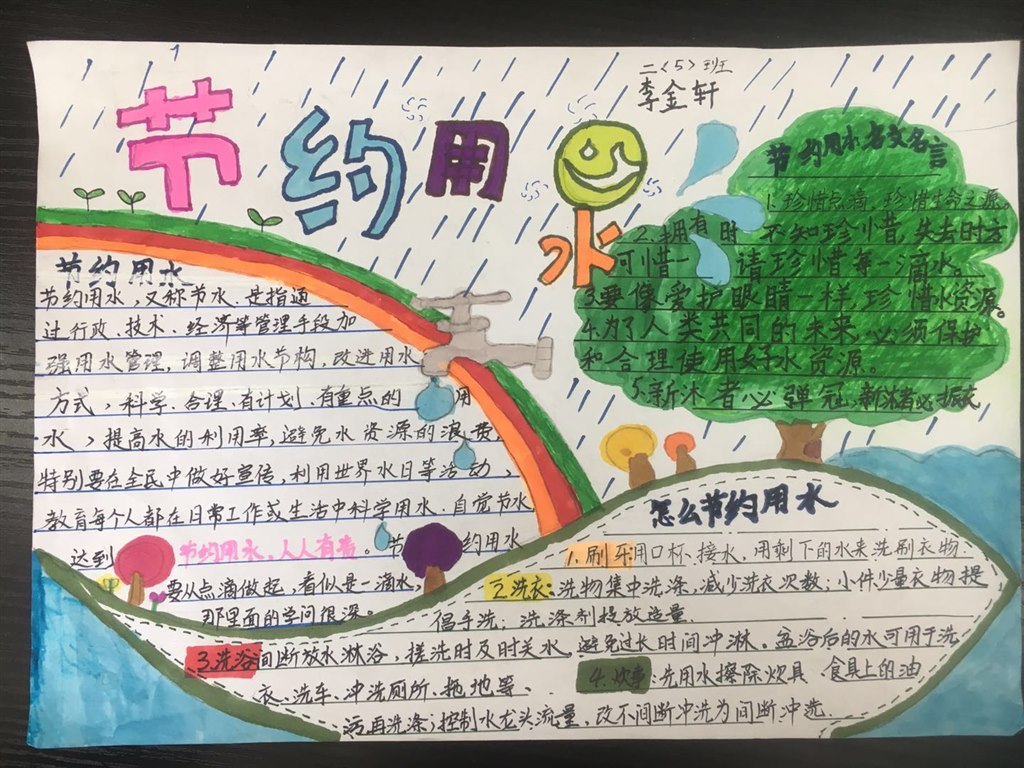 二〈5〉班
李金轩
节约用水
节约用水
节约用水，又称节水，是指通
过行政、技术、经济等管理手段加
强用水管理，调整用水节构，改进用水
方式，科学、合理、有计划、有重点的用
水，提高水的利用率，避免水资源的浪费，
特别要在全民中做好宣传，利用世界水日等活动，
教育每个人都在日常工作或生活中科学用水，自觉节水
达到节约用水，人人有责。节约用水
要从点滴做起，看似是一滴水，
那里面的学问很深。
节约用水名文名言
1.珍惜点滴，珍惜生命之源。
2.拥有时不知珍惜，失去时方
可惜一 请珍惜每一滴水。
3.要像爱护眼睛一样，珍惜水资源。
4.为了人类共同的未来，必须保护
和合理使用好水资源。
5.新沐者必弹冠，新浴者必振衣
怎么节约用水
1.刷牙用口杯、接水，用剩下的水来洗刷衣物.
2.洗衣：洗物集中洗涤，减少洗衣次数，小件少量衣物提
倡手洗；洗涤剂投放适量.
3.洗浴间断放水淋浴，搓洗时及时关水，避免过长时间冲淋。盆浴后的水可用于洗
衣、洗车、冲洗厕所、拖地等.
4.炊事：先用水擦除炊具 食具上的油
污再洗涤；控制水龙头流量，改不间断冲洗为间断冲洗.